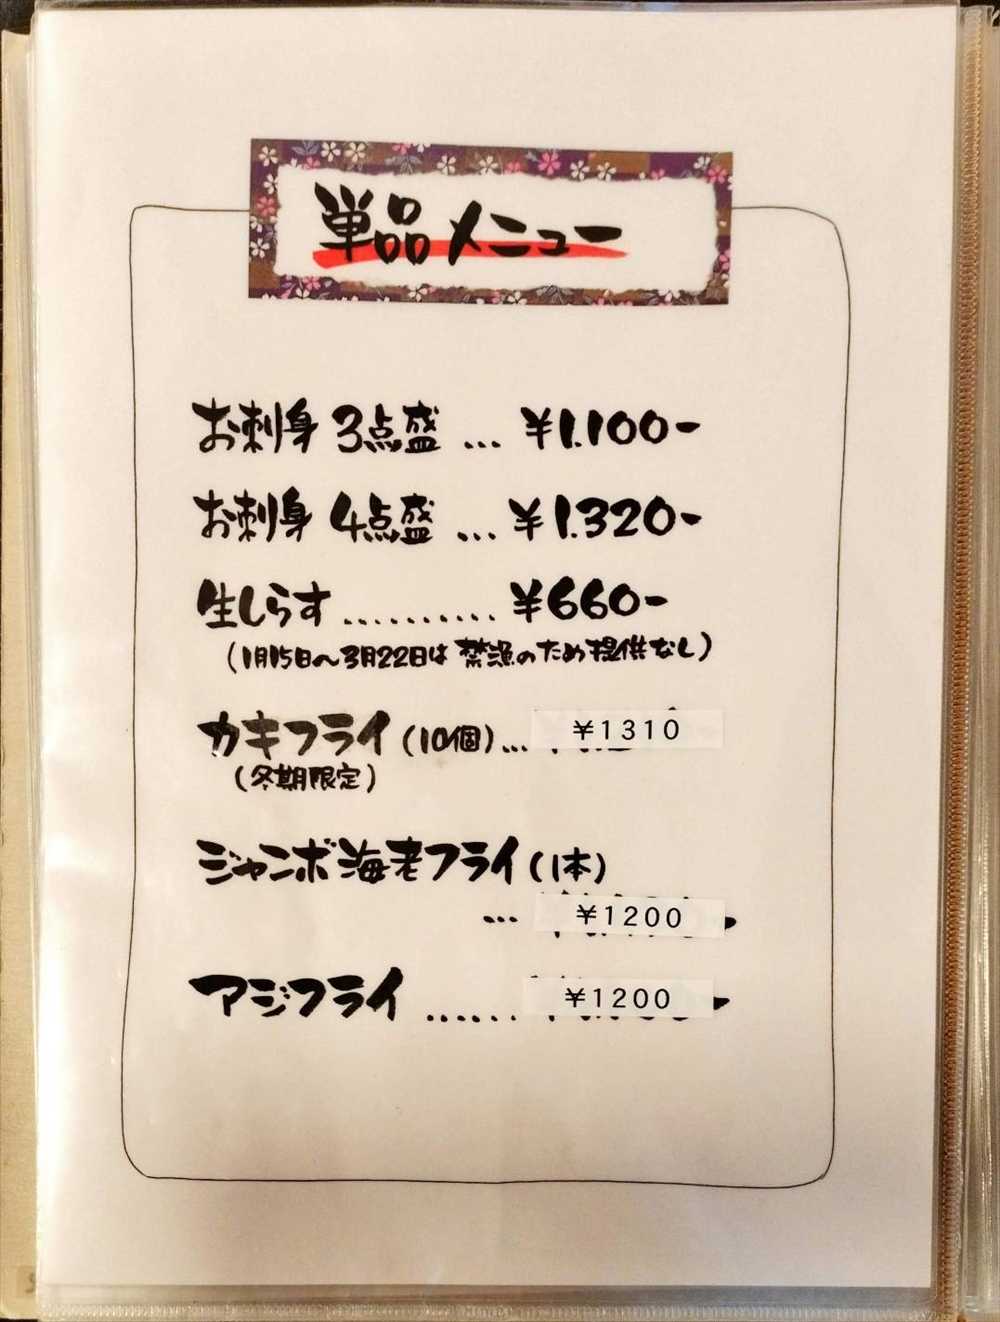 単品メニュー
お刺身 3点盛 … ¥1.100-
お刺身 4点盛 … ¥1.320-
生しらす .......... ¥660-
(1月15日〜3月22日は 禁漁のため提供なし)
カキフライ(10個)… ¥1310
(冬期限定)
ジャンボ海老フライ(1本)
… ¥1200-
アジフライ ...... ¥1200-